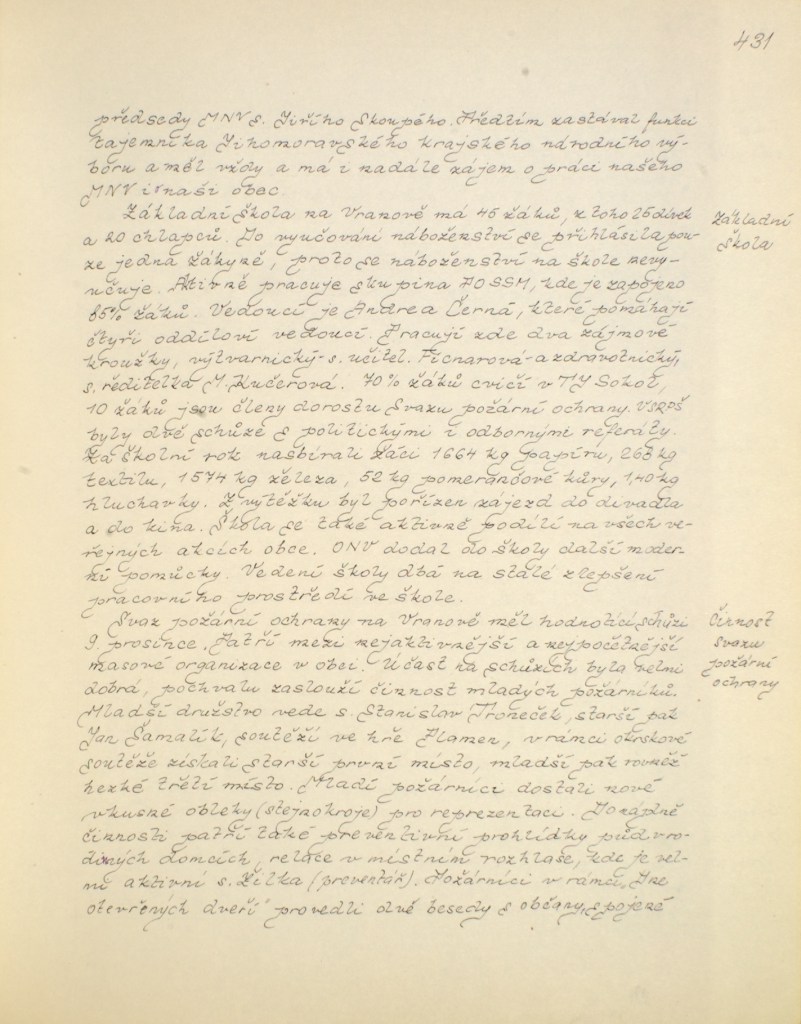 431
předsedy MNV s. Jiřího Skoupého. Předtím zastával funkci
tajemníka Jihomoravského krajského národního vý-
boru a měl vždy a má i nadále zájem o práci našeho
MNV i naší obec.
Základní škola na Vranově má 45 žáků, z toho 25 dívek
a 20 chlapců. Do vyučování náboženství se přihlásila pou-
ze jedna žákyně, proto se náboženství na škole nevy-
učuje. Aktivně pracuje skupina POSSM, kde je zapojeno
85% žáků. Vedoucí je Andrea Černá, které pomáhají
čtyři oddíloví vedoucí. Pracují zde dva zájmové
kroužky, výtvarnický - s. učitel. Ficnarová - a zdravotnický,
s. ředitelka M. Kučerová. 70% žáků cvičí v TJ Sokol,
10 žáků jsou členy dorostu Svazu požární ochrany. V SRPŠ
byly dvě schůze s politickými i odbornými referáty.
Za školní rok nasbírali žáci 1664 kg papíru, 263 kg
textilu, 1574 kg železa, 52 kg pomerančové kůry, 1,40 kg
hluchavky. Z výtěžku byl pořízen zájezd do divadla
a do kina. Škola se také aktivně podílí na všech ve-
řejných akcích obce. ONV dodal do školy další moder-
ní pomůcky. Vedení školy dbá na stálé zlepšení
pracovního prostředí ve škole.
Základní
škola
Svaz požární ochrany na Vranově měl hodnotící schůzi
9. prosince. Patří mezi nejaktivnější a nejpočetnější
masové organizace v obci. Účast na schůzích byla velmi
dobrá, pochvalu zaslouží činnost mladých požárníků.
Mladší družstvo vede s. Stanislav Troneček, starší pak
Jan Šamalík, soutěží ve hře Plamen, v rámci okrskové
soutěže získali starší první místo, mladší pak rovněž
hezké třetí místo. Mladí požárníci dostali nové
vkusné obleky (stejnokroje) pro reprezentaci. Do náplně
činnosti patří také preventivní prohlídky půd v ro-
dinných domcích, relace v místním rozhlase, kde je vel-
mi aktivní s. Žilka (preventář). Požárníci v rámci „Dne
otevřených dveří" provedli dvě besedy s občany, spojené
Činnost
Svazu
požární
ochrany